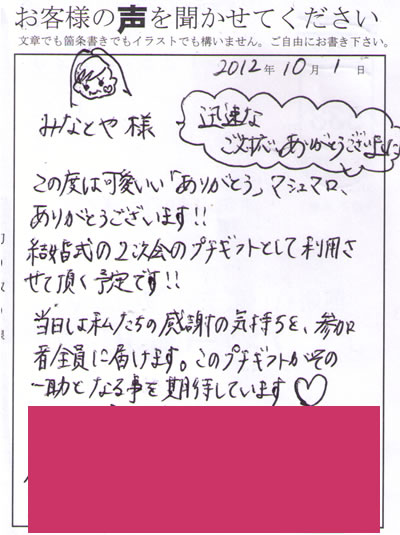 お客様の声を聞かせてください
文章でも箇条書きでもイラストでも構いません。ご自由にお書き下さい。
2012年10月1日
みなとや様
迅速な
ご対応、ありがとうございます!!
この度は可愛いい「ありがとう」マシュマロ、
ありがとうございます!!
結婚式の2次会のプチギフトとして利用さ
せて頂く予定です!!
当日は私たちの感謝の気持ちを、参加
者全員に届けます。このプチギフトがその
一助となる事を期待しています♡